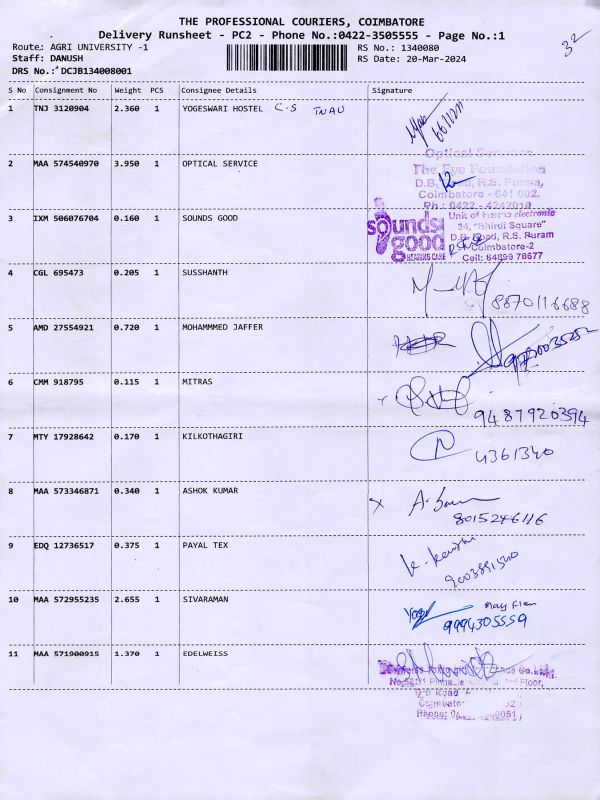 THE PROFESSIONAL COURIERS, COIMBATORE
Delivery Runsheet - PC2 - Phone No.:0422-3505555 - Page No.:1
32
Route: AGRI UNIVERSITY -1
Staff: DANUSH
DRS No.: DCJB134008001
RS No.: 1340080
RS Date: 20-Mar-2024
S No Consignment No Weight PCS Consignee Details Signature
1 TNJ 3120904 2.360 1 YOGESWARI HOSTEL C-S TNAU
2 MAA 574540970 3.950 1 OPTICAL SERVICE
The Eye Foundation
D.B. R.S. Puram,
Coimbatore - 641 002.
Ph: 0422 - 4242019
3 IXM 506076704 0.160 1 SOUNDS GOOD
sounds good
HEARING CARE
Unit of electronic
24, "Shirdi Square"
D.B. Road, R.S. Puram
Coimbatore-2
Cell: 84899 78677
4 CGL 695473 0.205 1 SUSSHANTH
8870116688
5 AMD 27554921 0.720 1 MOHAMMMED JAFFER
6 CMM 918795 0.115 1 MITRAS
9487920394
7 MTY 17928642 0.170 1 KILKOTHAGIRI
4361340
8 MAA 573346871 0.340 1 ASHOK KUMAR
8015246116
9 EDQ 12736517 0.375 1 PAYAL TEX
9003891520
10 MAA 572955235 2.655 1 SIVARAMAN
9994305559
11 MAA 571900915 1.370 1 EDELWEISS
Floor,
Road